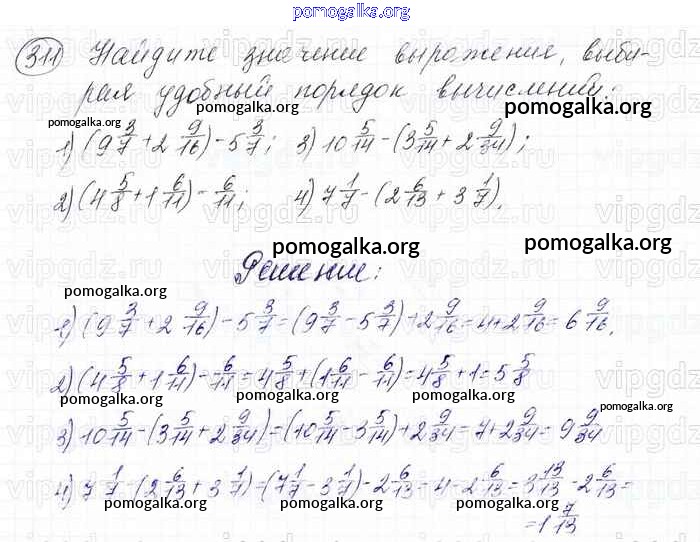 pomogalka.org
311 Найдите значение выражения, выби-
рая удобный порядок вычислений:
pomogalka.org pomogalka.org pomogalka.org
1) (9 3/7 + 2 9/16) - 5 3/7; 3) 10 5/14 - (3 5/14 + 2 9/34);
2) (4 5/8 + 1 6/11) - 6/11; 4) 7 1/7 - (2 6/13 + 3 1/7).
pomogalka.org pomogalka.org
Решение:
pomogalka.org
1) (9 3/7 + 2 9/16) - 5 3/7 = (9 3/7 - 5 3/7) + 2 9/16 = 4 + 2 9/16 = 6 9/16.
pomogalka.org
2) (4 5/8 + 1 6/11) - 6/11 = 4 5/8 + (1 6/11 - 6/11) = 4 5/8 + 1 = 5 5/8
pomogalka.org pomogalka.org pomogalka.org
3) 10 5/14 - (3 5/14 + 2 9/34) = (10 5/14 - 3 5/14) + 2 9/34 = 7 + 2 9/34 = 9 9/34
pomogalka.org
4) 7 1/7 - (2 6/13 + 3 1/7) = (7 1/7 - 3 1/7) - 2 6/13 = 4 - 2 6/13 = 3 13/13 - 2 6/13 =
= 1 7/13
pomogalka.org pomogalka.org pomogalka.org